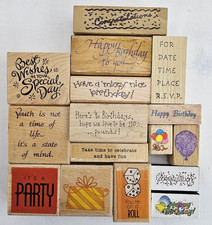 Congratulations
Best
Wishes
on your
Special
Day!
Happy
Birthday
to you
FOR
DATE
TIME
PLACE
R.S.V.P.
Have a "micey" nice
birthday!
Youth is not
a time of
life...
it's a state
of mind.
Here's to Birthdays,
hope we live to be 110...
Take time to celebrate
and have fun
Happy Birthday
IT'S A
PARTY
ROLL
Happy
Birthday!